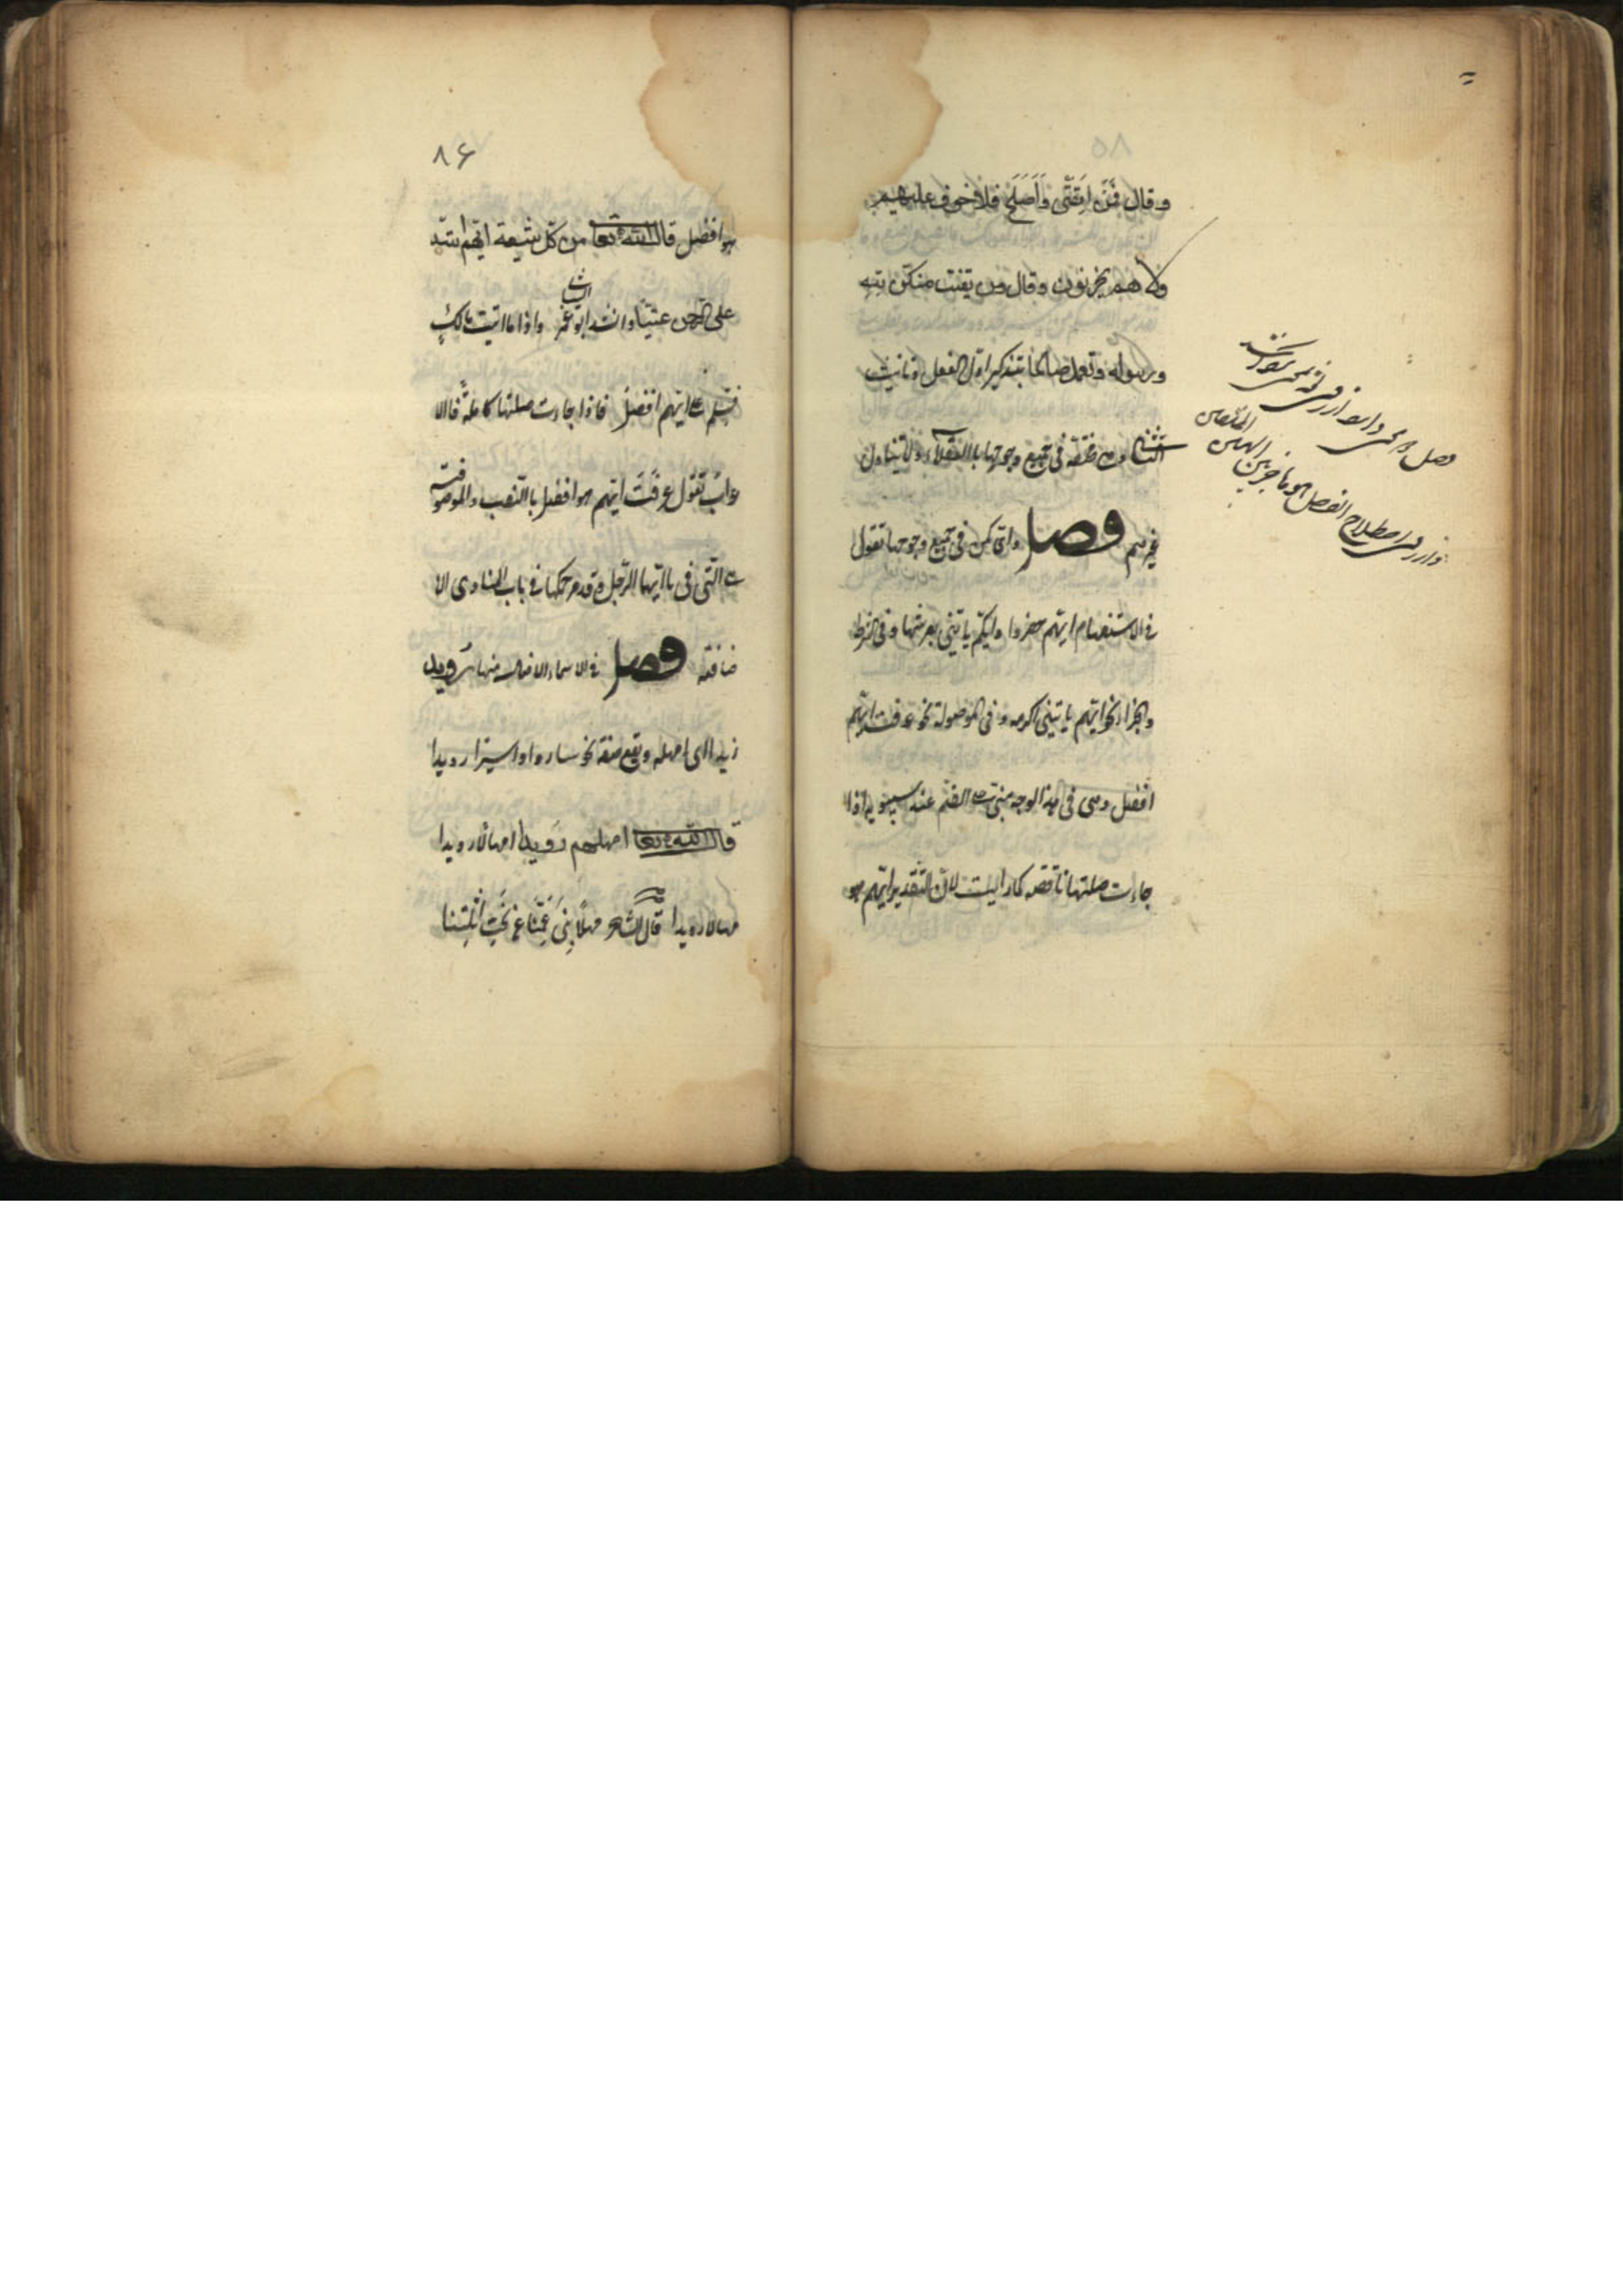 وقال فَمَن اتَّقَى وَأَصلَحَ فلا خوف عليهم
ولا هم يحزنون وقال ومن يقنت منكن لله
ورسوله وتعمل صالحا بتذكير اول الفعل وتانيث
الثاني وهي مختصة في جميع وجوهها بالعقلاء ولا يتناول
غيرهم فصل واي كمن في جميع وجوهها تقول
في الاستفهام ايهم حضروا وايكم ياتيني بعرشها وفي الشرط
والجزاء نحو ايهم ياتيني اكرمه وفي الموصولة نحو عرفت ايهم
افضل وهي في هذا الوجه مبني على الضم عند سيبويه اذا
جاءت صلتها ناقصة كما رايت لان التقدير ايهم هو
وصل
اصطلاح الفصل هو
٨٦
هو افضل قال الله تعا من كل شيعة ايهم اشد
على الرحمن عتيا وانشد ابو عمرو واذا ما اتيت مالك
فسلم على ايهم افضلُ فاذا جاءت صلتها كاملة فالا
عراب تقول عرفت ايهم هو افضل بالنصب والموصوفة
هي التي في يا ايها الرجل وقد مر حكمها في باب المنادى الا
ضافة فصل في الاسماء الافعال منها رُويد
زيدا اي امهله ويقع صفة نحو ساروا سيرا رويدا
قال الله تعا امهلهم رويدا امهالا رويدا
مهالا رويدا قال الشاعر مهلًا بني عَمِّنَا عن نَحتِ اثلتنا